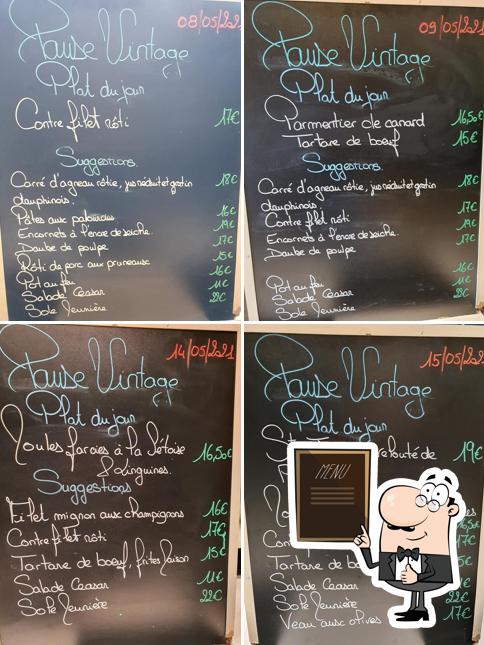 08/05/2021
Pause Vintage
Plat du jour
Contre filet rôti 17€
Suggestions.
Carré d'agneau rôtie, jus réduit et gratin 18€
dauphinois.
Pâtes aux palourdes 16€
Encornets à l'encre de seiche. 19€
Daube de poulpe 17€
Rôti de porc aux pruneaux 15€
Pot au feu 16€
Salade Ceasar 11€
Sole Meunière 22€
09/05/2021
Pause Vintage
Plat du jour
Parmentier de canard 16,50€
Tartare de boeuf 15€
Suggestions.
Carré d'agneau rôtie, jus réduit et gratin 18€
dauphinois.
Contre filet rôti 17€
Encornets à l'encre de seiche. 19€
Daube de poulpe 17€
Pot au feu 16€
Salade Ceasar 11€
Sole Meunière 22€
14/05/2021
Pause Vintage
Plat du jour
Moules farcies à la Sétoise 16,50€
Linguines.
Suggestions
Filet mignon aux champignons 16€
Contre filet rôti 17€
Tartare de boeuf, frites maison 15€
Salade Ceasar 11€
Sole Meunière 22€
15/05/2021
Pause Vintage
Plat du jour
velouté de 19€
MENU
Tartare de
Salade Ceasar 11€
Sole Meunière 22€
Veau aux olives 17€